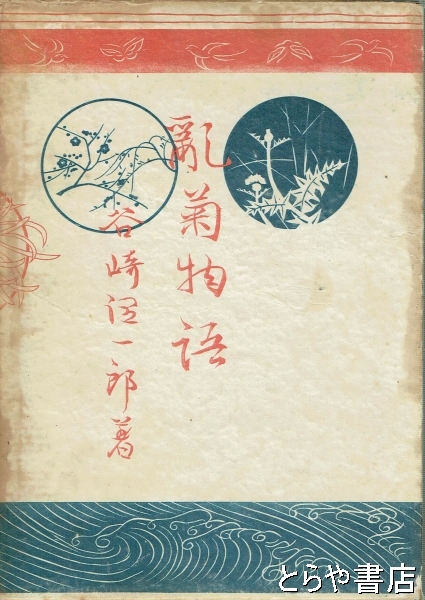 亂菊物語
谷崎潤一郎著
とらや書店